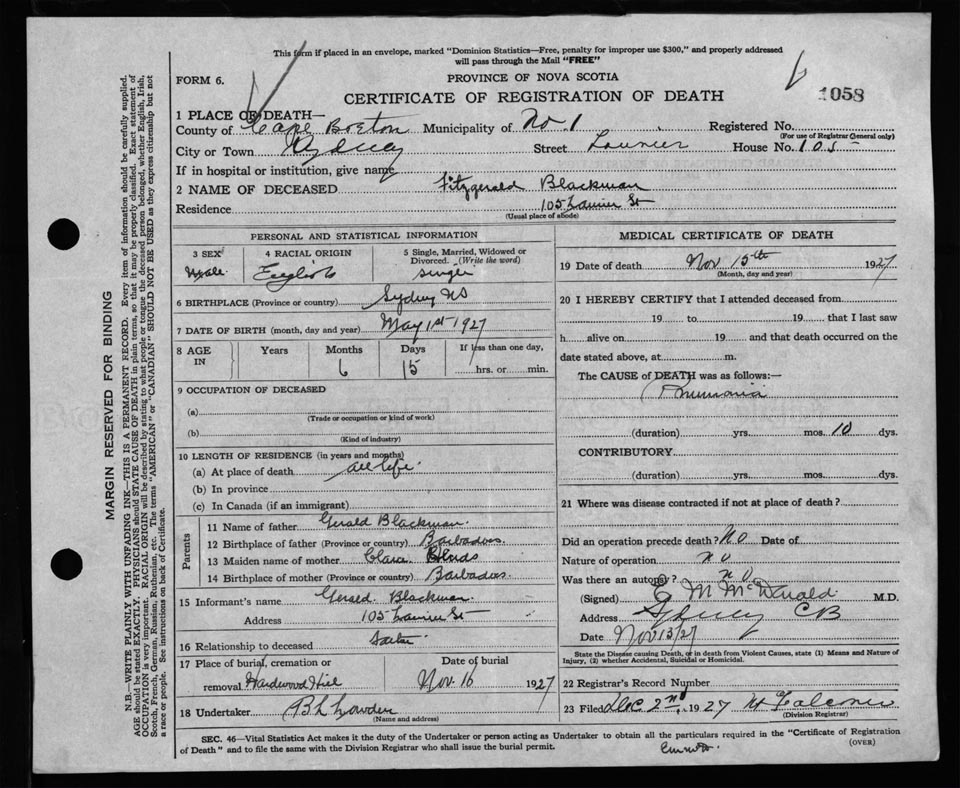 This form if placed in an envelope, marked "Dominion Statistics—Free, penalty for improper use $300," and properly addressed
will pass through the Mail "FREE"
FORM 6.
PROVINCE OF NOVA SCOTIA
CERTIFICATE OF REGISTRATION OF DEATH
1058
1 PLACE OF DEATH—
County of Cape Breton Municipality of No 1 Registered No.
(For use of Registrar General only)
City or Town Sydney Street Laurier House No. 105
If in hospital or institution, give name
2 NAME OF DECEASED Fitzgerald Blackman
Residence 105 Laurier St
(Usual place of abode)
PERSONAL AND STATISTICAL INFORMATION
3 SEX Male
4 RACIAL ORIGIN English
5 Single, Married, Widowed or Divorced. (Write the word) single
6 BIRTHPLACE (Province or country) Sydney NS
7 DATE OF BIRTH (month, day and year) May 1st 1927
8 AGE IN Years Months 6 Days 15 If less than one day, hrs. or min.
9 OCCUPATION OF DECEASED
(a)
(Trade or occupation or kind of work)
(b)
(Kind of industry)
10 LENGTH OF RESIDENCE (in years and months)
(a) At place of death all life
(b) In province
(c) In Canada (if an immigrant)
Parents
11 Name of father Gerald Blackman
12 Birthplace of father (Province or country) Barbadoes.
13 Maiden name of mother Clara
14 Birthplace of mother (Province or country) Barbadoes.
15 Informant's name Gerald Blackman
Address 105 Laurier St
16 Relationship to deceased
17 Place of burial, cremation or removal Hardwood Hill
Date of burial Nov. 16 1927
18 Undertaker
(Name and address)
MEDICAL CERTIFICATE OF DEATH
19 Date of death Nov 15th 1927
(Month, day and year)
20 I HEREBY CERTIFY that I attended deceased from
19 to 19 that I last saw
h alive on 19 and that death occurred on the
date stated above, at m.
The CAUSE of DEATH was as follows:—
Pneumonia
(duration) yrs. mos. 10 dys.
CONTRIBUTORY
(duration) yrs. mos. dys.
21 Where was disease contracted if not at place of death?
Did an operation precede death? No Date of
Nature of operation no
Was there an autopsy? no
(Signed) E M McDonald M.D.
Address Sydney CB
Date Nov 15/27
State the Disease causing Death, or in death from Violent Causes, state (1) Means and Nature of
Injury, (2) whether Accidental, Suicidal or Homicidal.
22 Registrar's Record Number
23 Filed Dec 2nd, 1927
(Division Registrar)
SEC. 46—Vital Statistics Act makes it the duty of the Undertaker or person acting as Undertaker to obtain all the particulars required in the "Certificate of Registration
of Death" and to file the same with the Division Registrar who shall issue the burial permit.
(OVER)
MARGIN RESERVED FOR BINDING
N.B.—WRITE PLAINLY WITH UNFADING INK—THIS IS A PERMANENT RECORD. Every item of information should be carefully supplied.
AGE should be stated EXACTLY. PHYSICIANS should STATE CAUSE OF DEATH in plain terms, so that it may be properly classified. Exact statement of
OCCUPATION is very important. RACIAL ORIGIN will be described by stating to what people or tongue the deceased person belonged, whether English, Irish,
Scotch, French, German, Russian, Ruthenian, etc. The terms "AMERICAN" or "CANADIAN" SHOULD NOT BE USED as they express citizenship but not
a race or people. See instructions on back of Certificate.